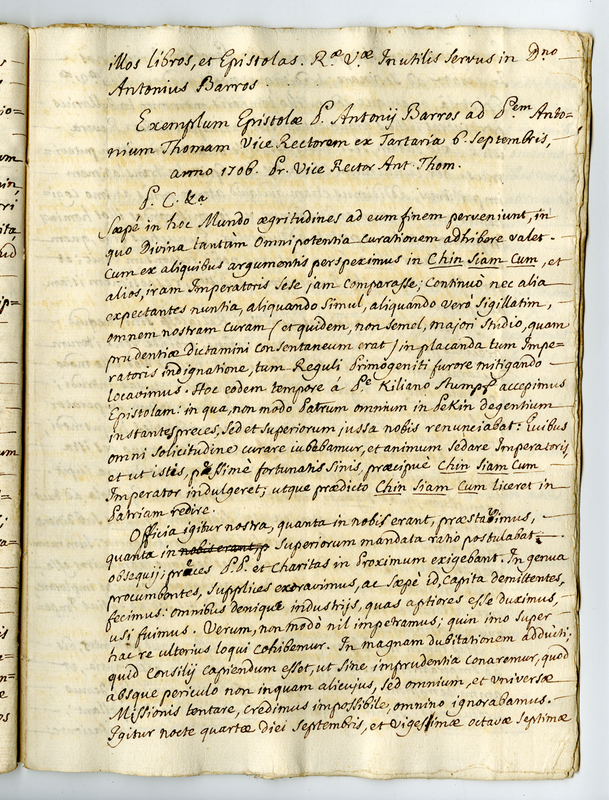 illos libros, et Epistolas. Ræ Væ Inutilis Servus in Dno
Antonius Barros.
Exemplum Epistolæ P. Antonij Barros ad Pem Anto=
nium Thomam Vice Rectorem ex Tartaria 6. Septembris,
anno 1706. Pr. Vice Rector Ant. Thom.
P. C. &a
Sæpé in hoc Mundo ægritudines ad eum finem perveniunt, in
quo Divina tantum Omnipotentia curationem adhibere valet.
Cum ex aliquibus argumentis perspeximus in Chin Siam Cum, et
alios, iram Imperatoris sese jam comparasse; Continuò nec alia
expectantes nuntia, aliquando simul, aliquando verò sigillatim,
omnem nostram curam (et quidem, non semel, majori studio, quam
prudentiæ dictamini consentaneum erat) in placanda tum Impe=
ratoris indignatione, tum Reguli Primogeniti furore mitigando
locavimus. Hoc eodem tempore á Pe Kiliano Stumpf accepimus
Epistolam: in qua, non modo Patrum omnium in PeKin degentium
instantes preces, sed et Superiorum jussa nobis renunciabat: Quibus
omni solicitudine curare iubebamur, et animum sedare Imperatoris,
et ut istis, pessime fortunatis Sinis, præcipue Chin Siam Cum
Imperator indulgeret; utque prædicto Chin Siam Cum liceret in
Patriam redire.
Officia igitur nostra, quanta in nobis erant, præstavimus,
quanta in nobis erant, p Superiorum mandata ratio postulabat
obsequij; preces P.P. et Charitas in Proximum exigebant. In genua
procumbentes, Supplices exoravimus, ac Sæpe id, Capita demittentes,
fecimus: omnibus denique industrijs, quas aptiores esse duximus,
usi fuimus. Verum, non modò nil impetramus; quin imo super
hac re ulterius loqui cohibemur. In magnam dubitationem adducti;
quid Consilij capiendum esset, ut sine imprudentia conaremur, quod
absque periculo non inquam alicujus, sed omnium, et Universæ
Missionis tentare, credimus impossibile, omnino ignorabamus.
Igitur nocte quartæ diei Septembris, et Vigessimæ octavæ Septimæ